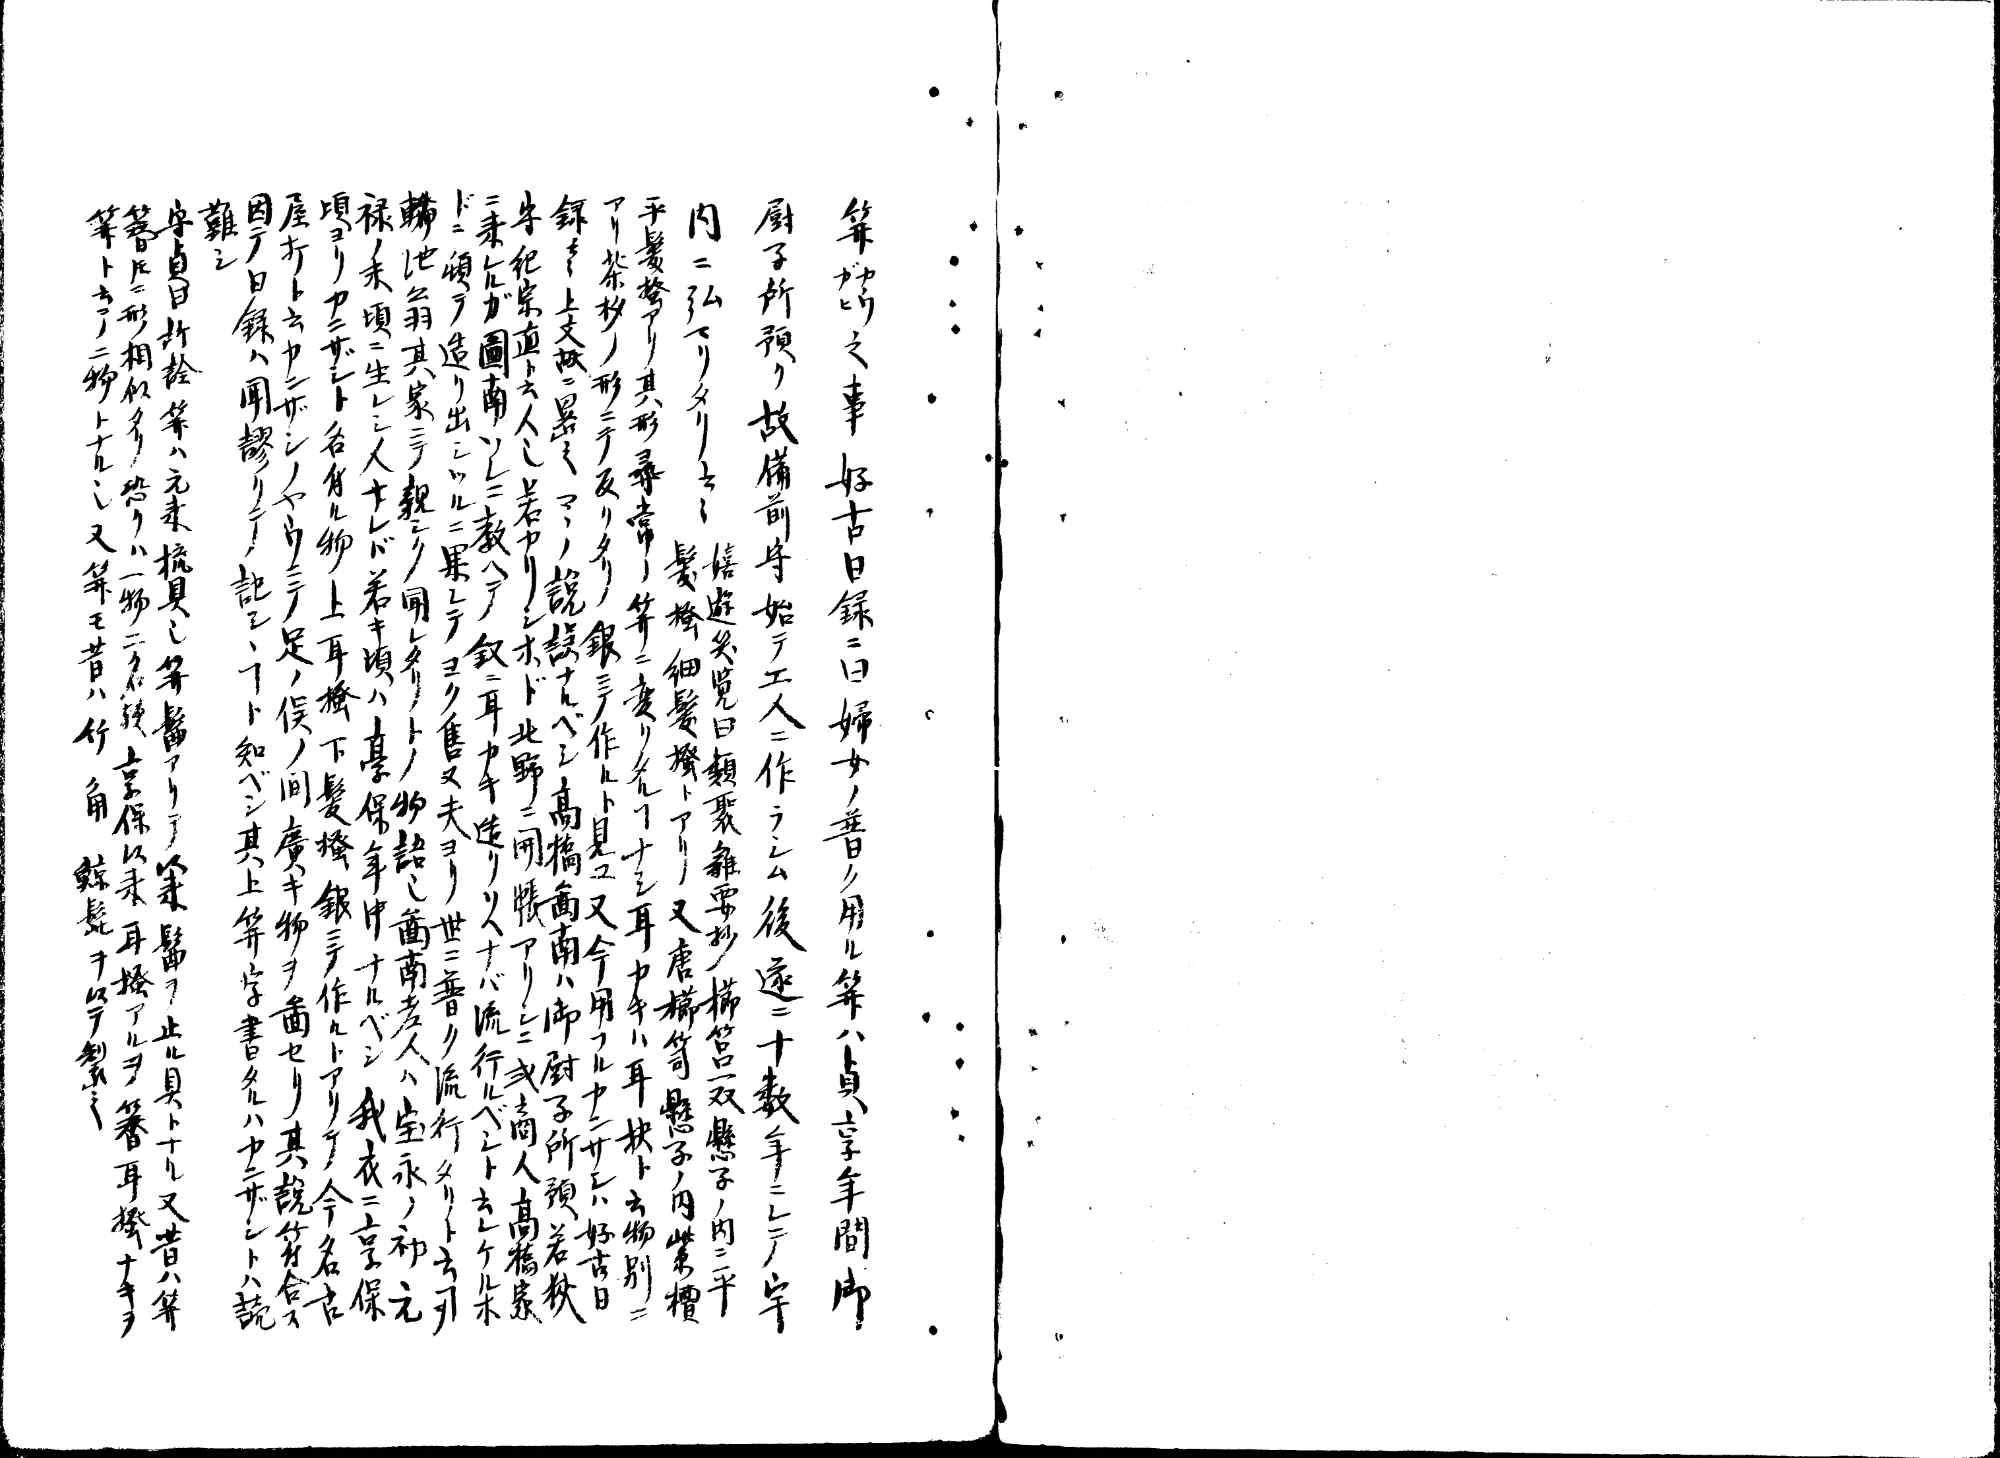 笄カウガヒ之事 好古日録ニ曰婦女ノ普ク用ル笄ハ貞享年間御
厨子所預リ故備前守始テ工人ニ作ラシム後遂ニ十数年ニシテ宇
内ニ弘マリタリト云々
嬉遊笑覧曰類聚雑要抄櫛筥一双懸子ノ内ニ平
髪掻細髪掻トアリ又唐櫛笥懸子ノ内紫檀
平髪掻アリ其形尋常ノ笄ニ変リタルヿナシ耳カキハ耳抉ト云物別ニ
アリ茶杓ノ形ニテ反リタリ銀ニテ作ルト見ユ又今用フルカンザシハ好古日
録云々上文故ニ畧之コノ説誤ナルベシ高橋啚南ハ御厨子所預若狭
守紀宗直ト云人也若カリシホド北野ニ開帳アリシニ或商人高橋家
ニ来レルガ圖南ソレニ教ヘテ釵ニ耳カキ造リリヘナバ流行ルベシト云レケルホ
ドニ頓テ造リ出シツルニ果シテヨク售又夫ヨリ世ニ普ク流行タリト云ヿヲ
輪池翁其家ニテ親シク聞レタリトノ物語也啚南老人ハ宝永ノ初元
禄ノ末頃ニ生レシ人ナレバ若キ頃ハ享保年中ナルベシ 我衣ニ享保
頃ヨリカンザシト名付ル物上耳掻下髪掻銀ニテ作ルトアリテ今名古
屋打ト云カンザシノヤウニテ足ノ俣ノ間廣キ物ヲ啚セリ其説符合ス
因テ日録ハ聞謬リテ記シヽヿト知ベシ其上笄字書タルハカンザシトハ読
難シ
守貞曰所詮笄ハ元来梳具也笄髷アリテ以来髷ヲ止ル具トナル又昔ハ笄
簪トモニ形相似タリ恐クハ一物二名歟享保以来耳掻アルヲ簪耳掻ナキヲ
笄ト云テ二物トナル也又笄モ昔ハ竹 角 鯨髭ヲ以テ製之